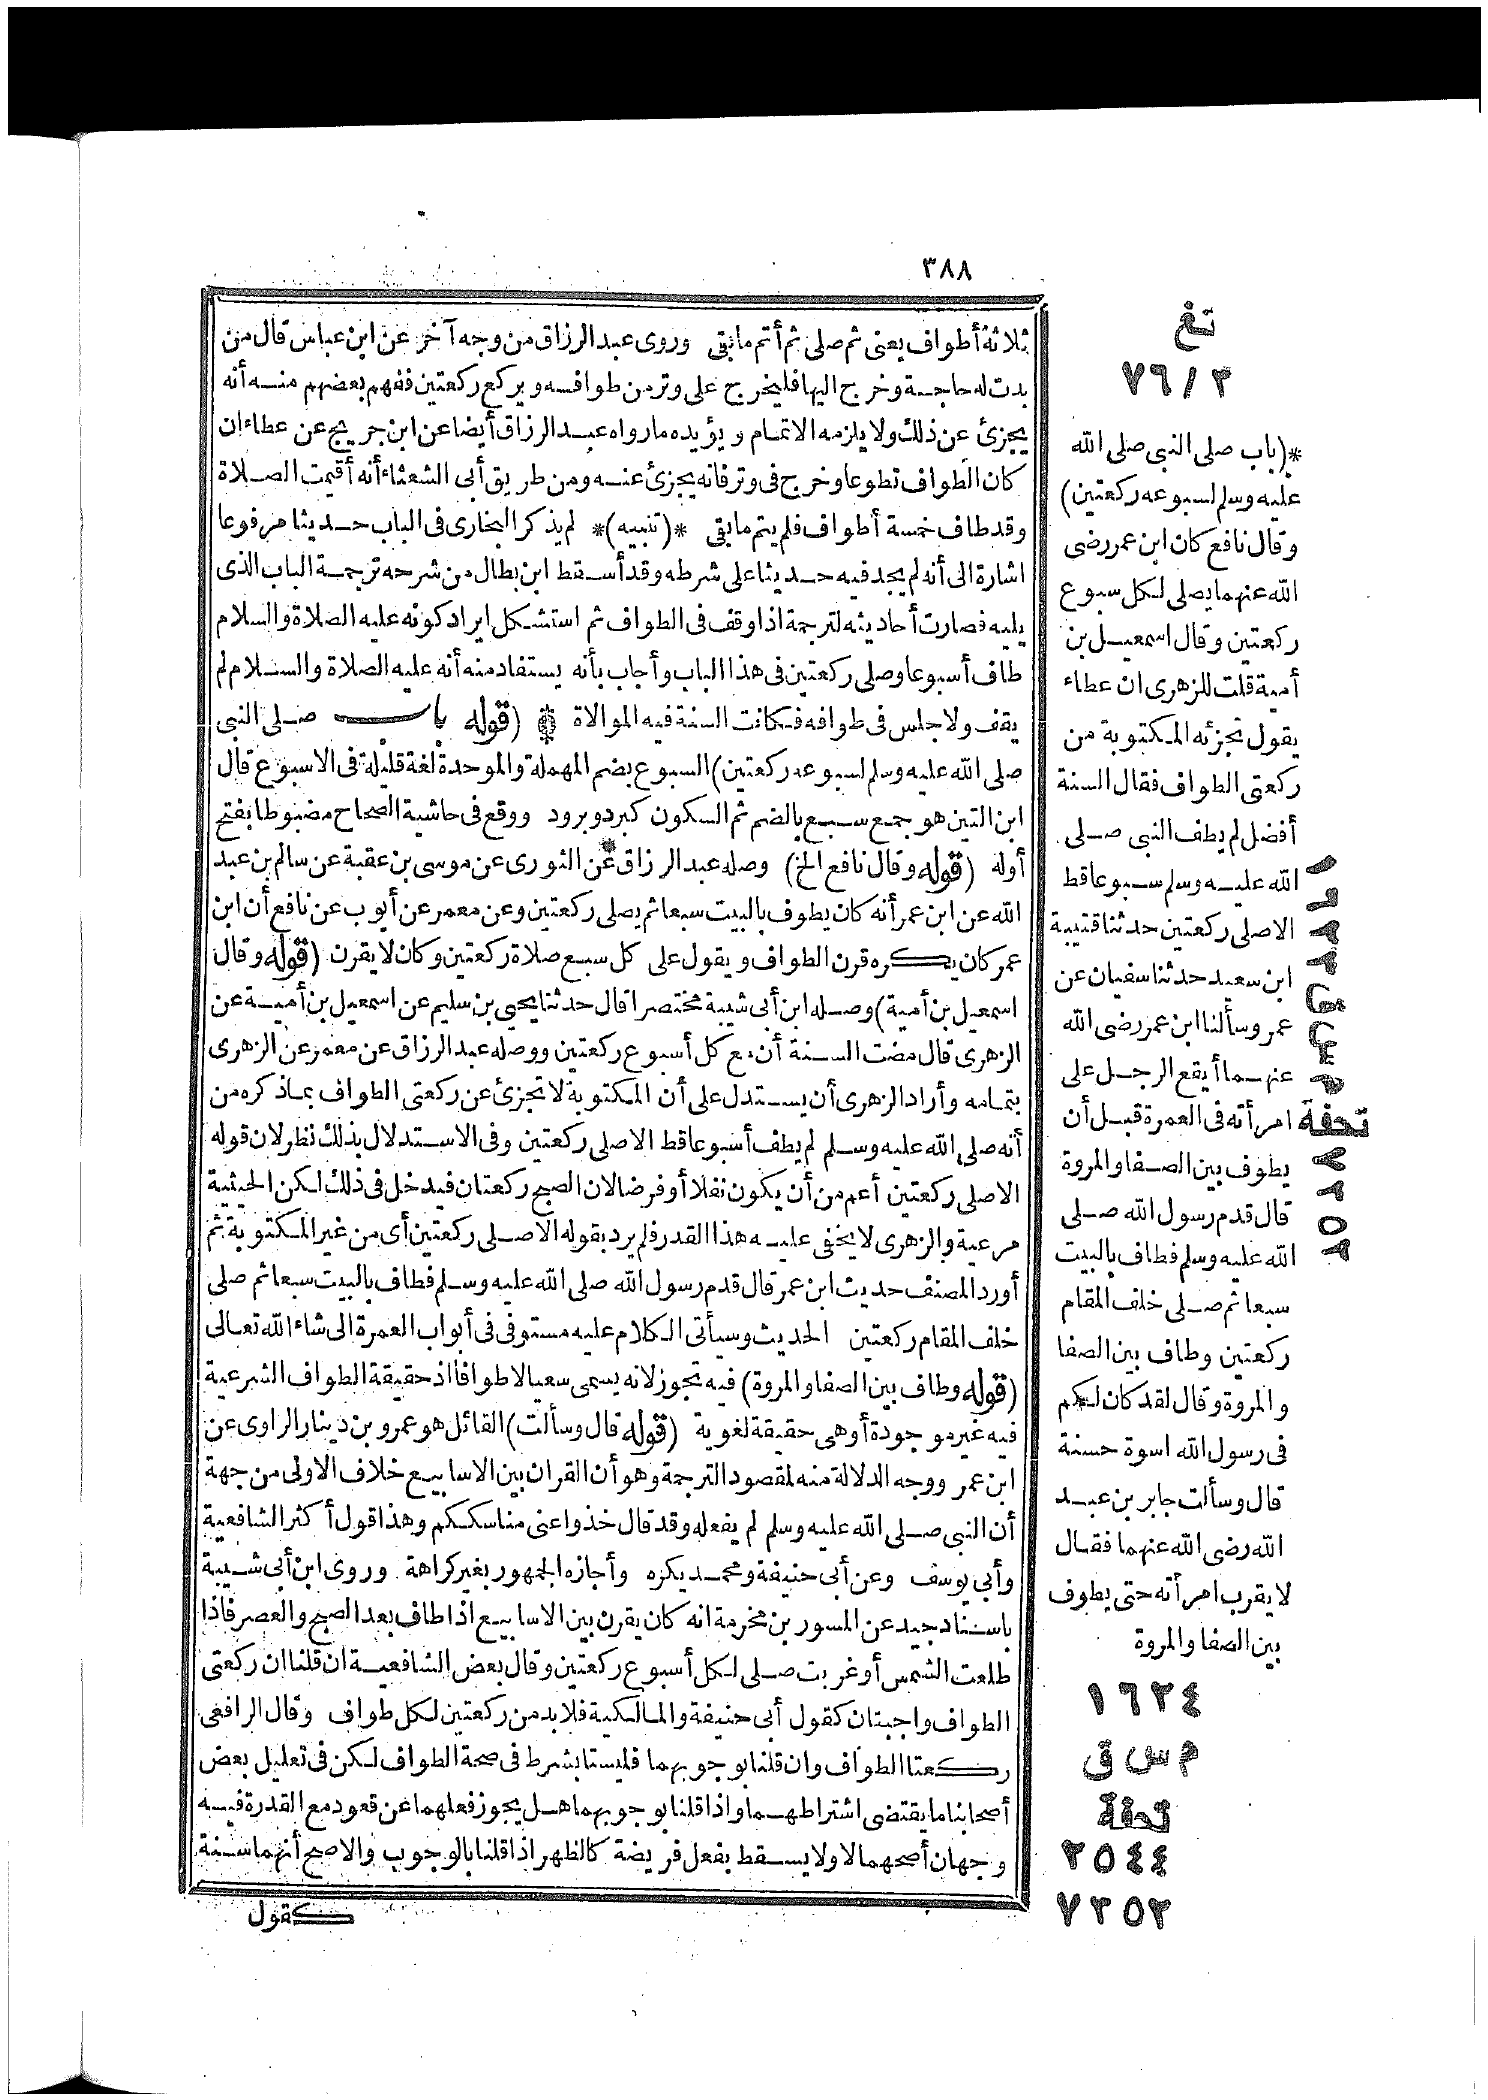 ٣٨٨
ثلاثة أطواف يعنى ثم صلى ثم أتم مابقى وروى عبد الرزاق من وجه آخر عن ابن عباس قال من
بدت له حاجة وخرج اليها فليخرج على وتر من طوافه ويركع ركعتين ففهم بعضهم منه أنه
يجزئ عن ذلك ولا يلزمه الاتمام ويؤيده مارواه عبد الرزاق أيضا عن ابن جريج عن عطاء ان
كان الطواف تطوعا وخرج فى وتر فانه يجزئ عنه ومن طريق أبى الشعثاء أنه أقيمت الصلاة
وقد طاف خمسة أطواف فلم يتم مابقى *(تنبيه)* لم يذكر البخارى فى الباب حديثا مرفوعا
اشارة الى أنه لم يجد فيه حديثا على شرطه وقد أسقط ابن بطال من شرحه ترجمة الباب الذى
يليه فصارت أحاديثه لترجمة اذا وقف فى الطواف ثم استشكل ايراد كونه عليه الصلاة والسلام
طاف أسبوعا وصلى ركعتين فى هذا الباب وأجاب بأنه يستفاد منه أنه عليه الصلاة والسلام لم
يقف ولا جلس فى طوافه فكانت السنة فيه الموالاة (قوله باب صلى النبى
صلى الله عليه وسلم لسبوعه ركعتين) السبوع بضم المهملة والموحدة لغة قليلة فى الاسبوع قال
ابن التين هو جمع سبع بالضم ثم السكون كبرد وبرود ووقع فى حاشية الصحاح مضبوطا بفتح
أوله (قوله وقال نافع الخ) وصله عبد الرزاق عن الثورى عن موسى بن عقبة عن سالم بن عبد
الله عن ابن عمر أنه كان يطوف بالبيت سبعا ثم يصلى ركعتين وعن معمر عن أيوب عن نافع أن ابن
عمر كان يكره قرن الطواف ويقول على كل سبع صلاة ركعتين وكان لا يقرن (قوله وقال
اسمعيل بن أمية) وصله ابن أبى شيبة مختصرا قال حدثنا يحيى بن سليم عن اسمعيل بن أمية عن
الزهرى قال مضت السنة أن مع كل أسبوع ركعتين ووصله عبد الرزاق عن معمر عن الزهرى
بتمامه وأراد الزهرى أن يستدل على أن المكتوبة لا تجزئ عن ركعتى الطواف بما ذكره من
أنه صلى الله عليه وسلم لم يطف أسبوعا قط الا صلى ركعتين وفى الاستدلال بذلك نظر لان قوله
الا صلى ركعتين أعم من أن يكون نفلا أو فرضا لان الصبح ركعتان فيدخل فى ذلك لكن الحيثية
مرعية والزهرى لا يخفى عليه هذا القدر فلم يرد بقوله الا صلى ركعتين أى من غير المكتوبة ثم
أورد المصنف حديث ابن عمر قال قدم رسول الله صلى الله عليه وسلم فطاف بالبيت سبعا ثم صلى
خلف المقام ركعتين الحديث وسيأتى الكلام عليه مستوفى فى أبواب العمرة ان شاء الله تعالى
(قوله وطاف بين الصفا والمروة) فيه تجوز لانه يسمى سعيا لا طوافا اذ حقيقة الطواف الشرعية
فيه غير موجودة أو هى حقيقة لغوية (قوله قال وسألت) القائل هو عمرو بن دينار الراوى عن
ابن عمر ووجه الدلالة منه لمقصود الترجمة وهو أن القران بين الاسابيع خلاف الاولى من جهة
أن النبى صلى الله عليه وسلم لم يفعله وقد قال خذوا عنى مناسككم وهذا قول أكثر الشافعية
وأبى يوسف وعن أبى حنيفة ومحمد يكره وأجازه الجمهور بغير كراهة وروى ابن أبى شيبة
باسناد جيد عن المسور بن مخرمة انه كان يقرن بين الاسابيع اذا طاف بعد الصبح والعصر فاذا
طلعت الشمس أو غربت صلى لكل أسبوع ركعتين وقال بعض الشافعية ان قلنا ان ركعتى
الطواف واجبتان كقول أبى حنيفة والمالكية فلا بد من ركعتين لكل طواف وقال الرافعى
ركعتا الطواف وان قلنا بوجوبهما فليستا بشرط فى صحة الطواف لكن فى تعليل بعض
أصحابنا ما يقتضى اشتراطهما واذا قلنا بوجوبهما هل يجوز فعلهما عن قعود مع القدرة فيه
وجهان أصحهما لا ولا يسقط بفعل فريضة كالظهر اذا قلنا بالوجوب والاصح أنهما سنة
كقول
تغ
٧٦/٣
*(باب صلى النبى صلى الله
عليه وسلم لسبوعه ركعتين)
وقال نافع كان ابن عمر رضى
الله عنهما يصلى لكل سبوع
ركعتين وقال اسمعيل بن
أمية قلت للزهرى ان عطاء
يقول تجزئه المكتوبة من
ركعتى الطواف فقال السنة
أفضل لم يطف النبى صلى
الله عليه وسلم سبوعا قط
الا صلى ركعتين حدثنا قتيبة
ابن سعيد حدثنا سفيان عن
عمرو سألنا ابن عمر رضى الله
عنهما أيقع الرجل على
امرأته فى العمرة قبل أن
يطوف بين الصفا والمروة
قال قدم رسول الله صلى
الله عليه وسلم فطاف بالبيت
سبعا ثم صلى خلف المقام
ركعتين وطاف بين الصفا
والمروة وقال لقد كان لكم
فى رسول الله اسوة حسنة
قال وسألت جابر بن عبد
الله رضى الله عنهما فقال
لا يقرب امرأته حتى يطوف
بين الصفا والمروة
١٦٢٤
م س ق
تحفة
٢٥٤٤
٧٣٥٢
١٦٢٣
م س ق
تحفة
٧٣٥٢